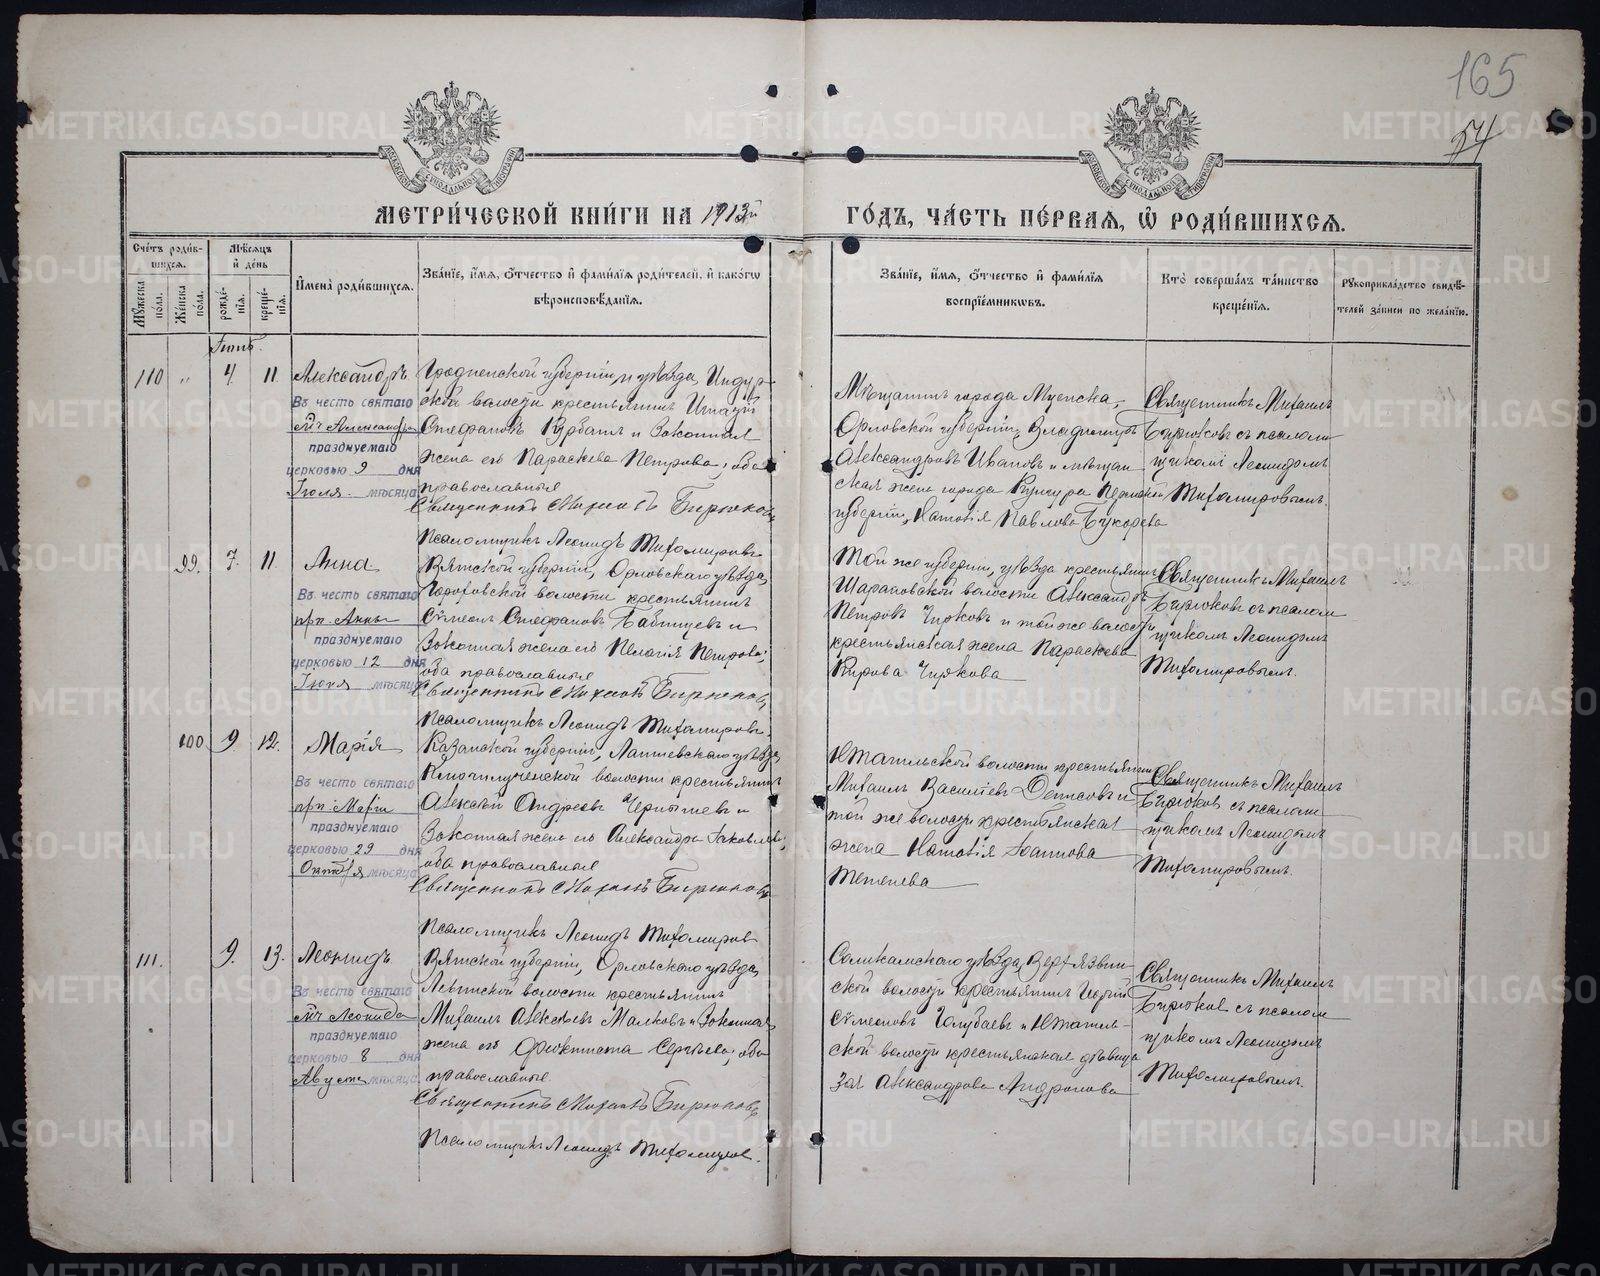 165
54
МЕТРИ́ЧЕСКОЙ КНИ́ГИ НА 1913й ГО́ДЪ, ЧА́СТЬ ПЕ́РВАѦ, Ѡ҆ РОДИ́ВШИХСѦ.
Сче́тъ роди́вшихсѧ.
Мꙋ́жеска по́ла.
Же́нска по́ла.
Мѣ́сѧцъ и҆ де́нь
рожде́нїѧ.
креще́нїѧ.
И҆мена̀ роди́вшихсѧ.
Зва́нїе, и҆́мѧ, ѻ҆́тчество и҆ фами́лїѧ роди́телей, и҆ како́гѡ
вѣроисповѣ́данїѧ.
Зва́нїе, и҆́мѧ, ѻ҆́тчество и҆ фами́лїѧ
воспрїе́мникѡвъ.
Кто̀ соверша́лъ та́инство
креще́нїѧ.
Рꙋкоприкла́дство свидѣ́-
телей за́писи по жела́нїю.
110 " 4. 11. Александръ
Въ честь святаго
мч Александра
празднуемаго
церковью 9 дня
Іюля мѣсяца
Гродненской губерніи, и уѣзда, Индур-
ской волости крестьянинъ
Стефановъ Курбатъ и законная
жена его Параскева Петрова, оба
православные
Священникъ Михаилъ Бирюковъ
Псаломщикъ Леонидъ Тихомировъ
Мѣщанинъ города Мценска,
Орловской губерніи, Владиміръ
Александровъ Ивановъ и мѣщан
ская жена города Кунгура Пермской
губерніи, Наталія Павлова
Священникъ Михаилъ
Бирюковъ съ псалом
щикомъ Леонидомъ
Тихомировымъ.
99. 7. 11. Анна
Въ честь святаго
прп. Анны
празднуемаго
церковью 12 дня
Іюня мѣсяца
Вятской губерніи, Орловскаго уѣзда,
волости крестьянинъ
Сѵмеонъ Стефановъ Бабинцевъ и
законная жена его Пелагія Петрова;
оба православные
Священникъ Михаилъ Бирюковъ
Псаломщикъ Леонидъ Тихомировъ.
Той же губерніи, уѣзда крестьянинъ
волости Александръ
Петровъ Чирковъ и той же волости
крестьянская жена Параскева
Кирова Чиркова
Священникъ Михаилъ
Бирюковъ съ псалом
щикомъ Леонидомъ
Тихомировымъ.
100 9 12. Марія
Въ честь святаго
прп. Маріи
празднуемаго
церковью 29 дня
Октября мѣсяца
Казанской губерніи, Лаишевскаго уѣзда,
волости крестьянинъ
Алексѣй Андреевъ Чернышевъ и
законная жена его Александра Іаковлева;
оба православные
Священникъ Михаилъ Бирюковъ
Псаломщикъ Леонидъ Тихомировъ
Н Тагильской волости крестьянинъ
Михаилъ Васильевъ Денисовъ и
той же волости крестьянская
жена Наталія Іоаннова
Тетенева
Священникъ Михаилъ
Бирюковъ съ псалом
щикомъ Леонидомъ
Тихомировымъ.
111. 9. 13. Леонидъ
Въ честь святаго
мч Леонида
празднуемаго
церковью 8 дня
Августа мѣсяца
Вятской губерніи, Орловскаго уѣзда,
волости крестьянинъ
Михаилъ Алексѣевъ Малковъ и законная
жена его Ѳеоктиста Сергѣева; оба
православные.
Священникъ Михаилъ Бирюковъ
Псаломщикъ Леонидъ Тихомировъ.
Соликамскаго уѣзда, Верх-язвин-
ской волости крестьянинъ Георгій
Сѵмеоновъ Голубаевъ и Н Тагиль-
ской волости крестьянская дѣвица
Зоя Александрова Андронова
Священникъ Михаилъ
Бирюковъ съ псалом
щикомъ Леонидомъ
Тихомировымъ.
METRIKI.GASO-URAL.RU